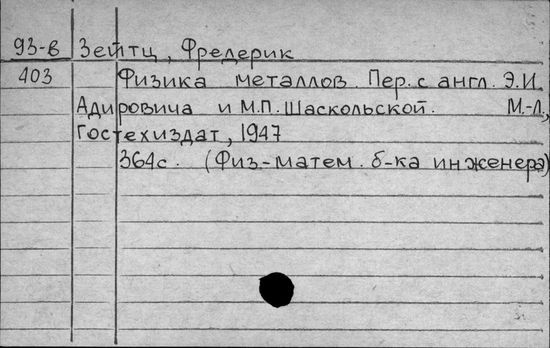 93-в Зейтц, Фредерик
403 Физика металлов. Пер. с англ. Э.И.
Адировича и М.П. Шаскольской. М.-Л.,
Гостехиздат, 1947
364с. (Физ-матем. б-ка инженера)